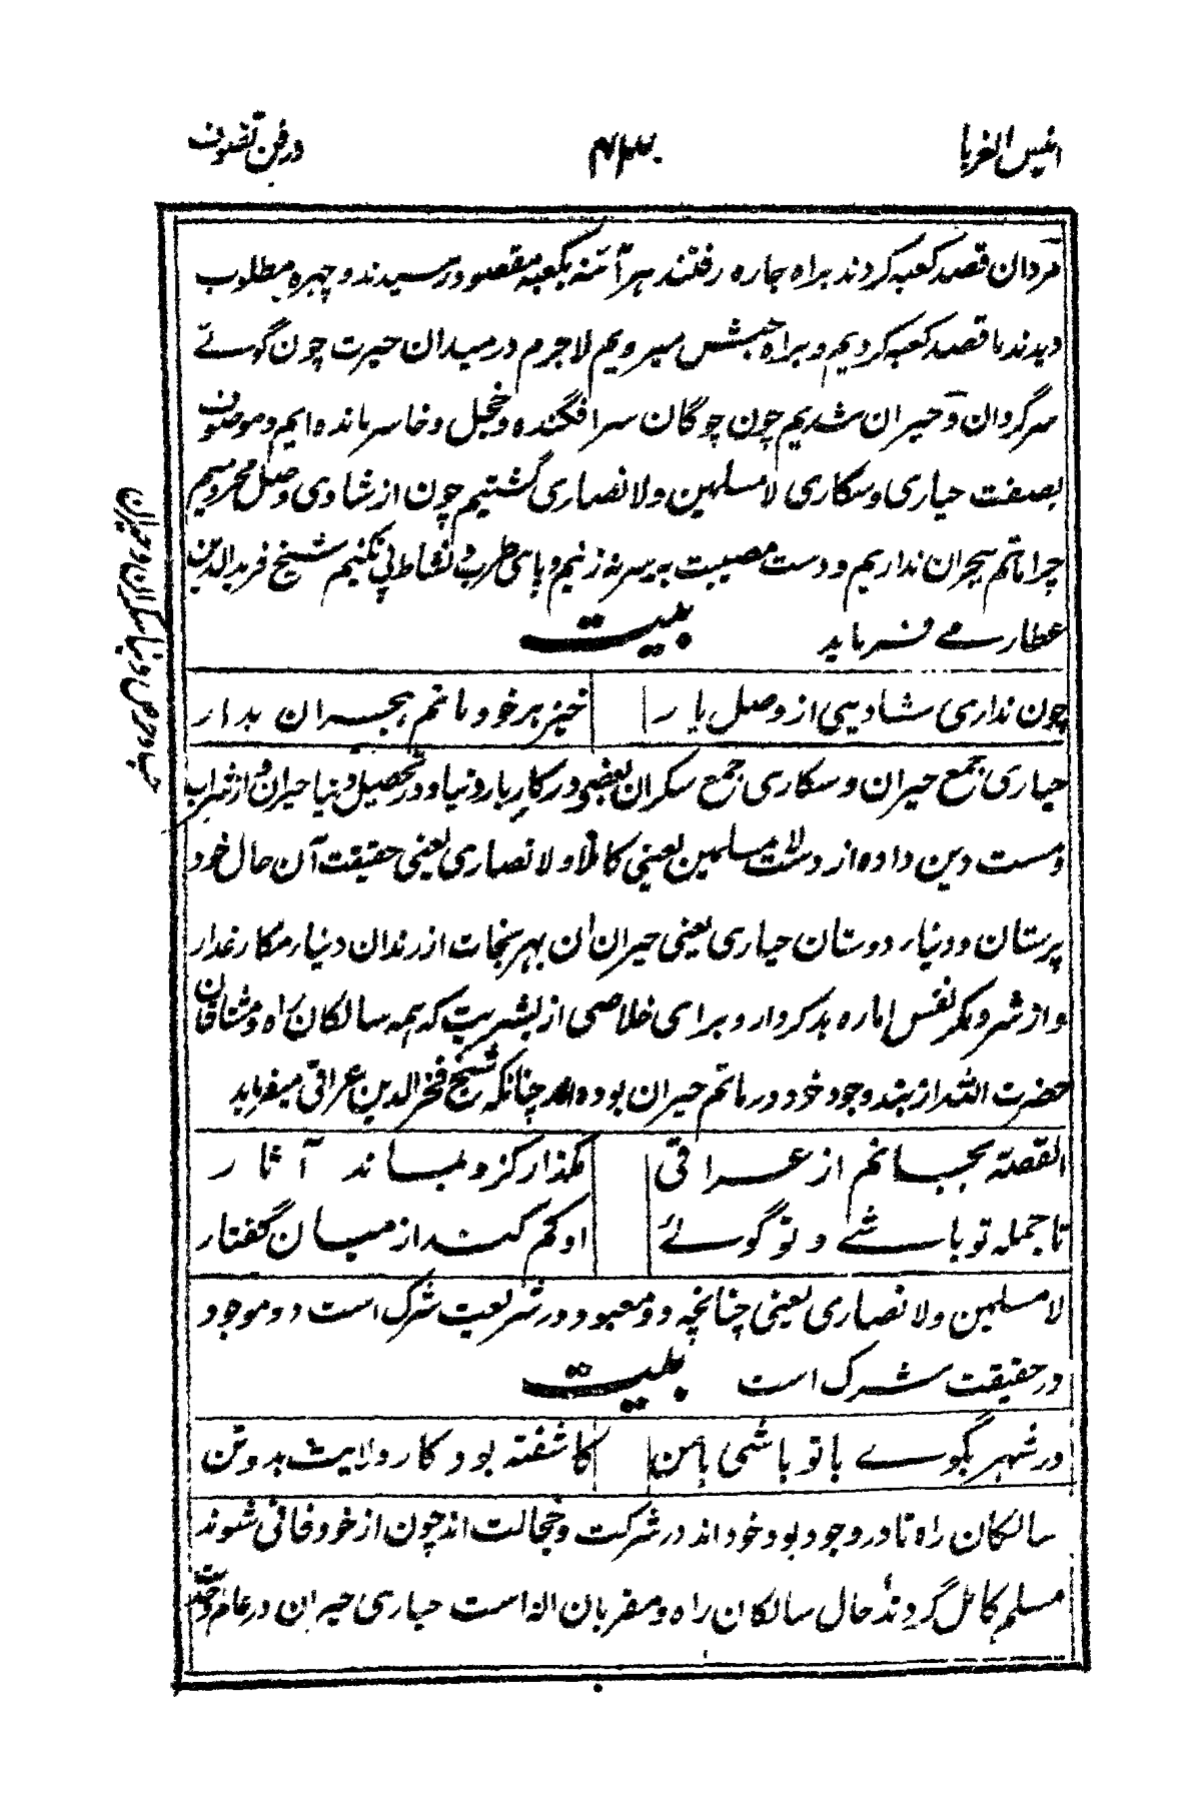 انیس الغربا
۴۳
در فن تصوف
مردان قصد کعبه کردند براه جاره رفتند هر آئنه بکعبه مقصود رسیدند و چهره مطلوب
دیدند ما قصد کعبه کردیم و براه حبش میرویم لاجرم در میدان حیرت چون گوئے
سرگردان و حیران شدیم چون چوگان سرافگنده و خجل و خاسر مانده ایم و موصوف
بصفت حیاری و سکاری لا مسلمین ولا نصاری گشتیم چون از شادی وصل محرومیم
چرا ماتم هجران نداریم و دست مصیبت بر سر نزنیم و پای طرب و نشاط پی نکنیم شیخ فرید الدین
عطار مے فرماید بیت
چون نداری شادیی از وصل یار خیز بر خود ماتم هجران بدار
حیاری جمع حیران و سکاری جمع سکران بعضی در کار بار دنیا و در تحصیل دنیا حیران و از شراب
و مست دین داده از دست لا مسلمین یعنی کاملا و لا نصاری یعنی حقیقت آن حال خود
پرستان و دنیا دوستان حیاری یعنی حیران آن بهر نجات از رندان دنیا مکار غدار
و از شر و مکر نفس اماره بدکردار و برای خلاصی از بشریت که همه سالکان راه و مشتاقان
حضرت الله از بند وجود خود در ماتم حیران بوده اند چنانکه شیخ فخر الدین عراقی میفرماید
القصه بجانم از عراقی مگذار کزو بماند آثار
تا جمله تو باشے و تو گوئے او کم کند از میان گفتار
لا مسلمین ولا نصاری یعنی چنانچه دو معبود در شریعت شرک است دو موجود
در حقیقت شرک است بیت
در شهر بگوے یا تو باشی یا من کاشفته بود کار ولایت بدو تن
سالکان راه تا در وجود بود خود اند در شرکت و خجالت اند چون از خود فانی شوند
مسلم کامل گردند حال سالکان راه و مقربان اله است حیاری حیران در عالم وحدت